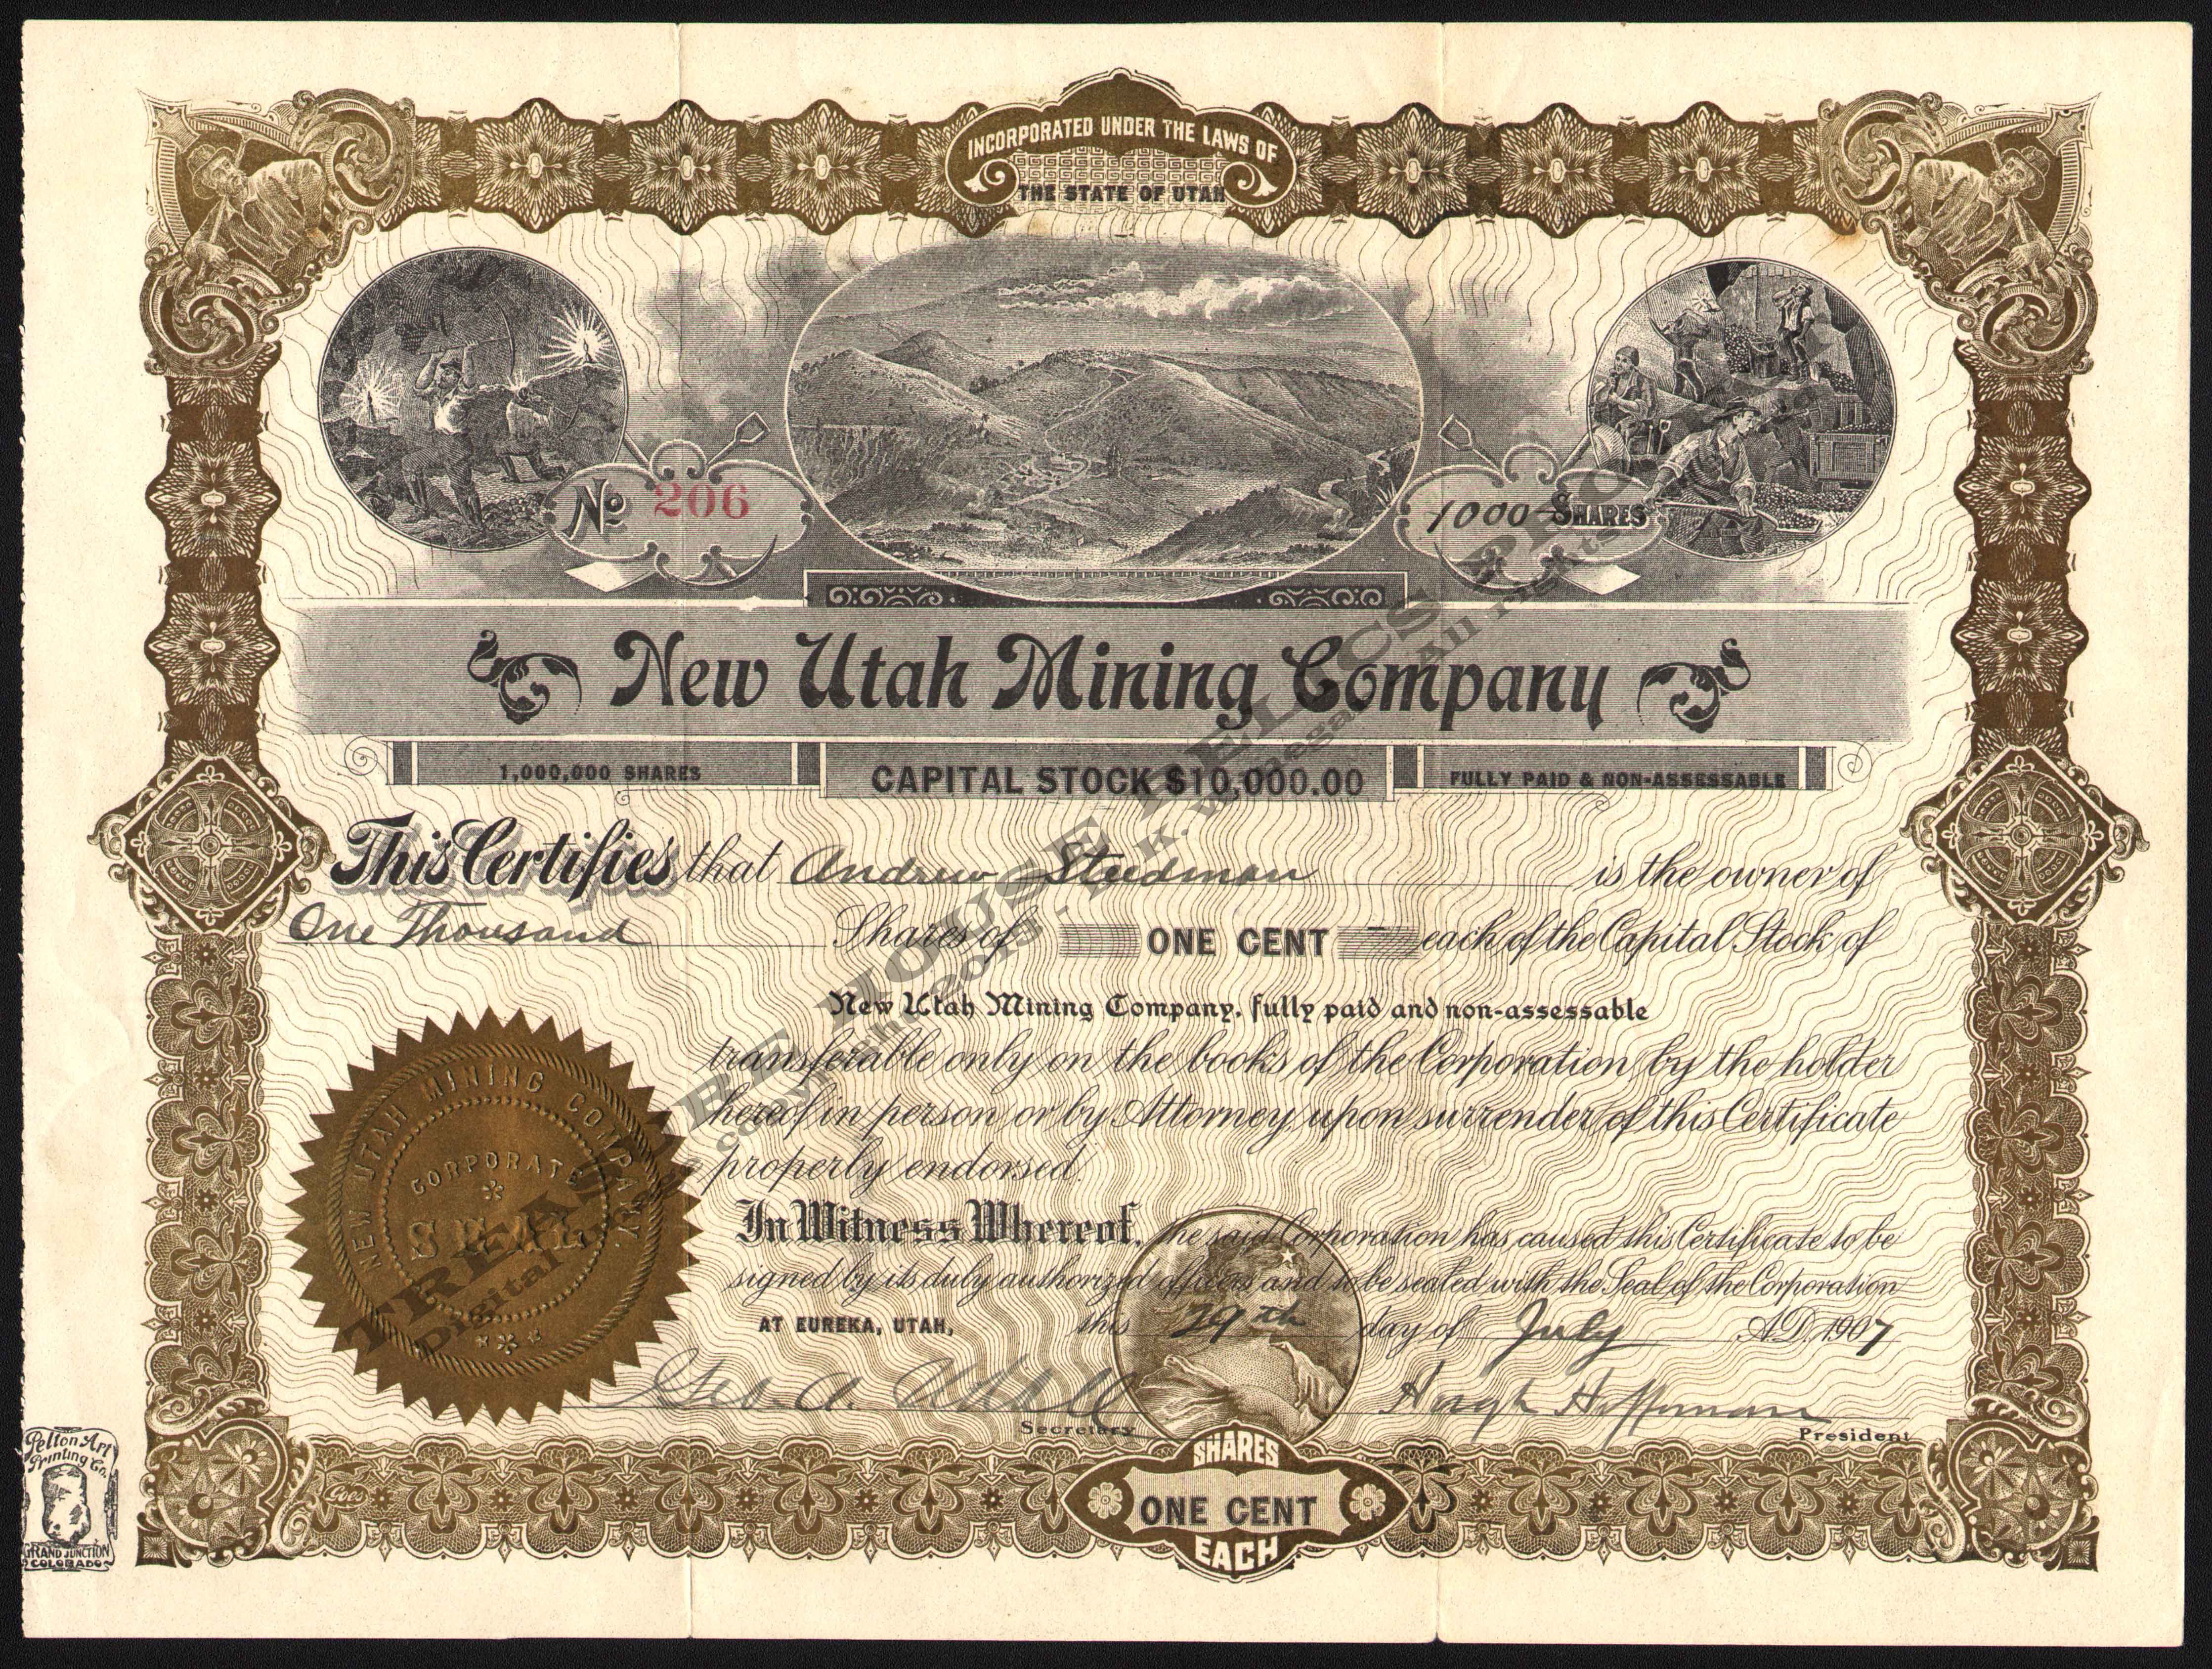 INCORPORATED UNDER THE LAWS OF
THE STATE OF UTAH
No 206
1000 SHARES
New Utah Mining Company
1,000,000 SHARES
CAPITAL STOCK $10,000.00
FULLY PAID & NON-ASSESSABLE
This Certifies that Andrew Steedman is the owner of
One Thousand Shares of ONE CENT each of the Capital Stock of
New Utah Mining Company, fully paid and non-assessable
transferable only on the books of the Corporation by the holder
hereof in person or by Attorney, upon surrender of this Certificate
properly endorsed.
In Witness Whereof, the said Corporation has caused this Certificate to be
signed by its duly authorized officers and to be sealed with the Seal of the Corporation
AT EUREKA, UTAH, this 29th day of July A.D. 1907
Geo. A.
Secretary
Hugh Hoffman
President
NEW UTAH MINING COMPANY
CORPORATE
SEAL
SHARES
ONE CENT
EACH
Goes
Pelton Art
Printing Co.
GRAND JUNCTION
COLORADO
TREASURE HOUSE RELICS
Digital Image copyright 2015 -
All rights